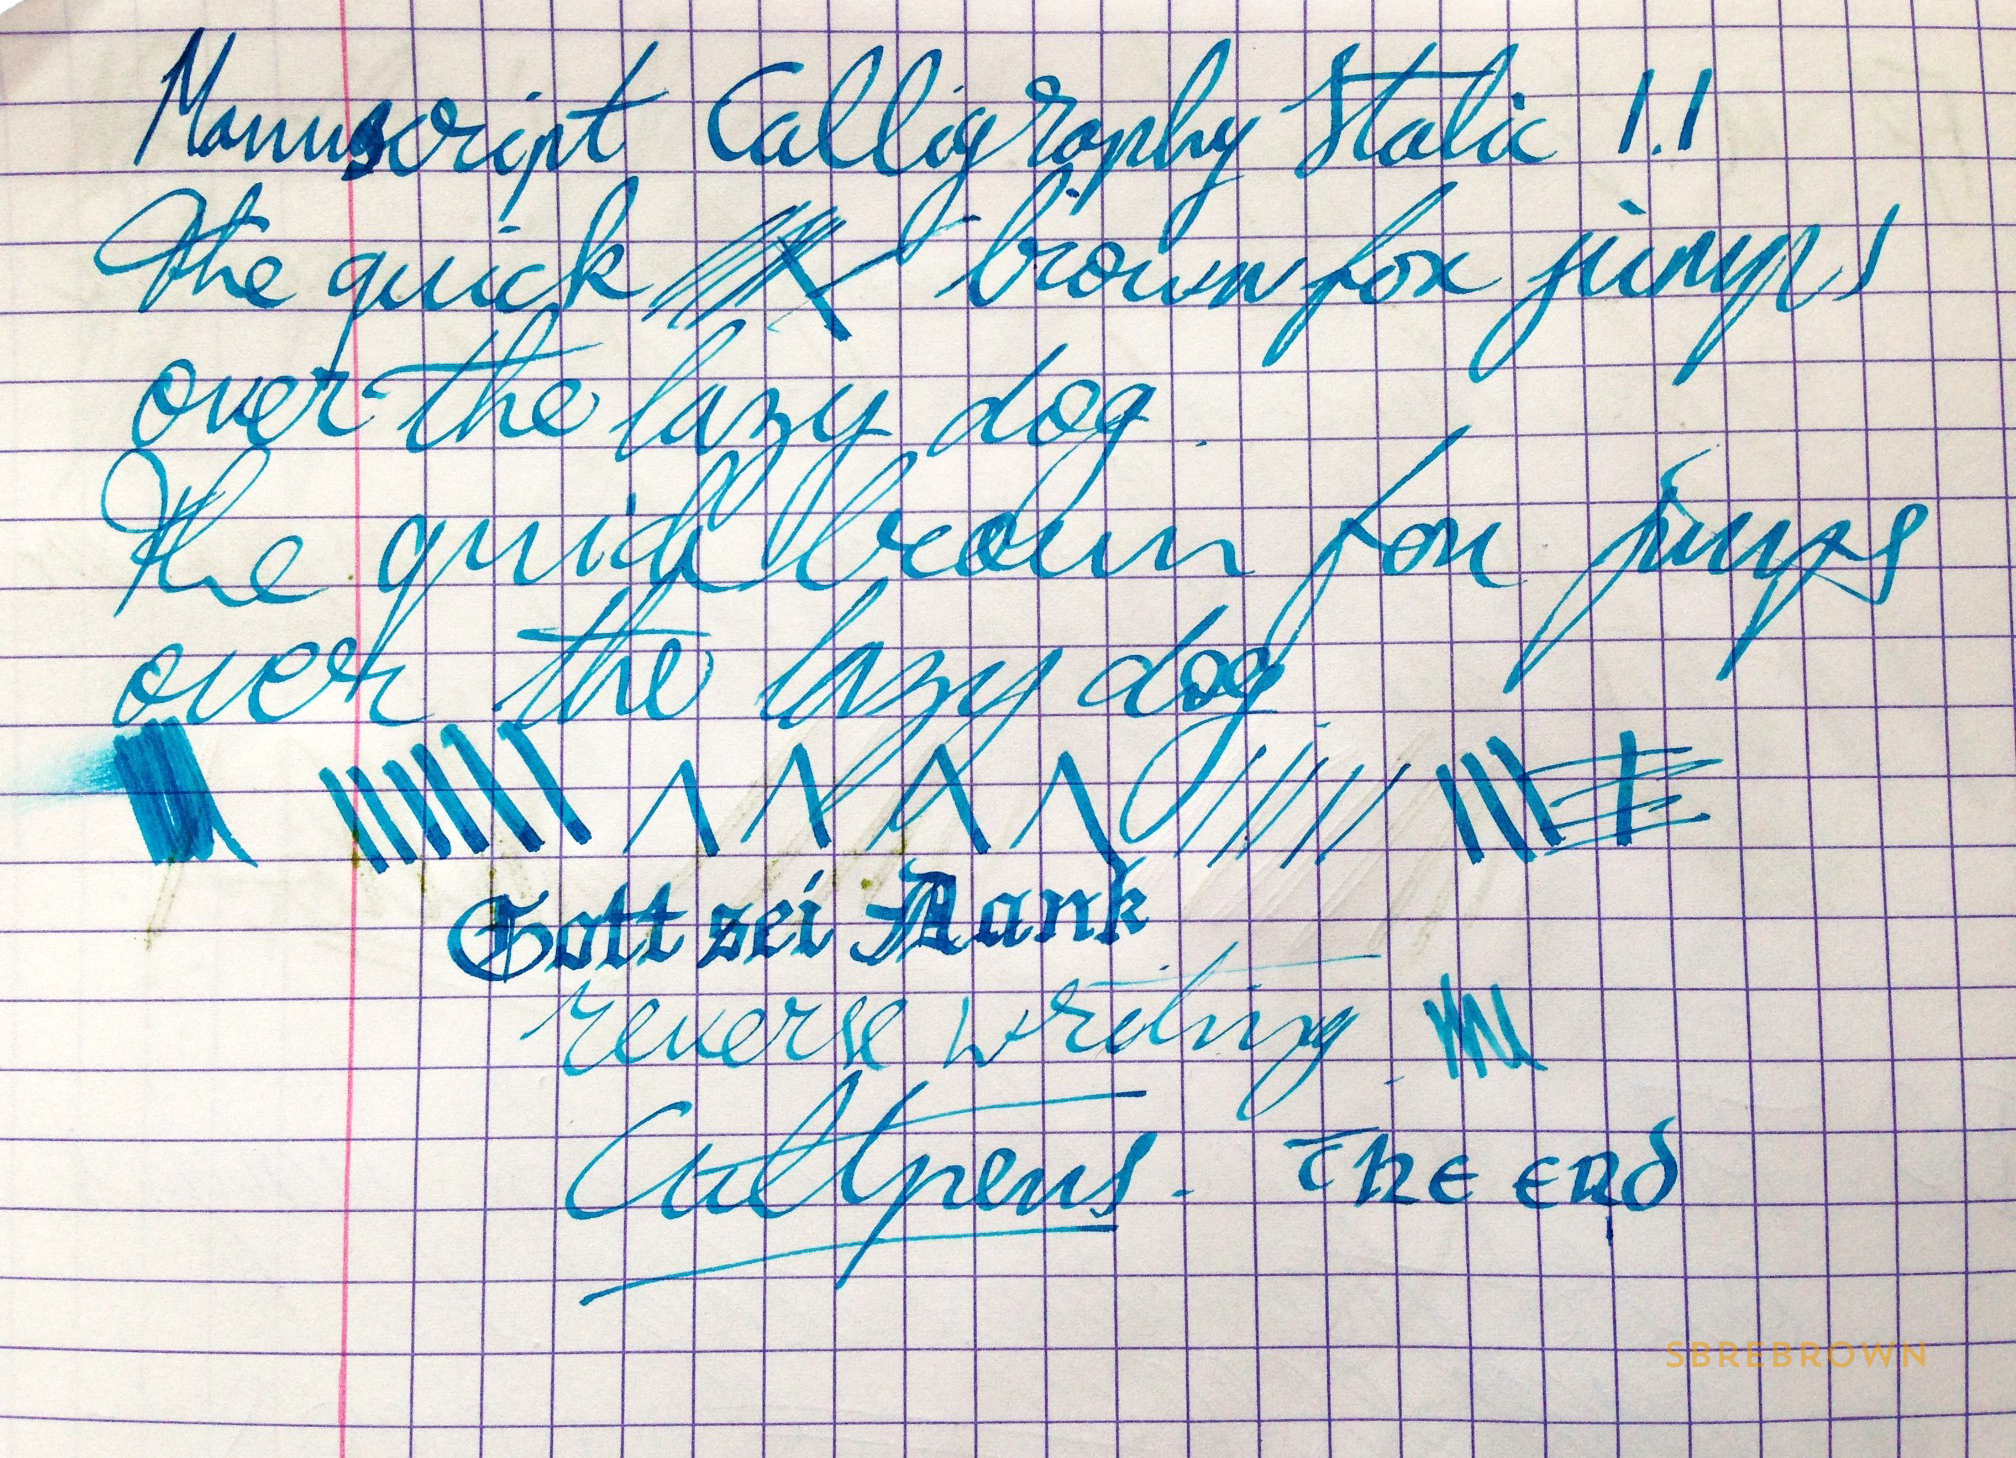 Manuscript Calligraphy Italic 1.1
The quick brown fox jumps
over the lazy dog.
The quick brown fox jumps
over the lazy dog.
Gott sei Dank
reverse writing.
Cultpens. The End
SBREBROWN